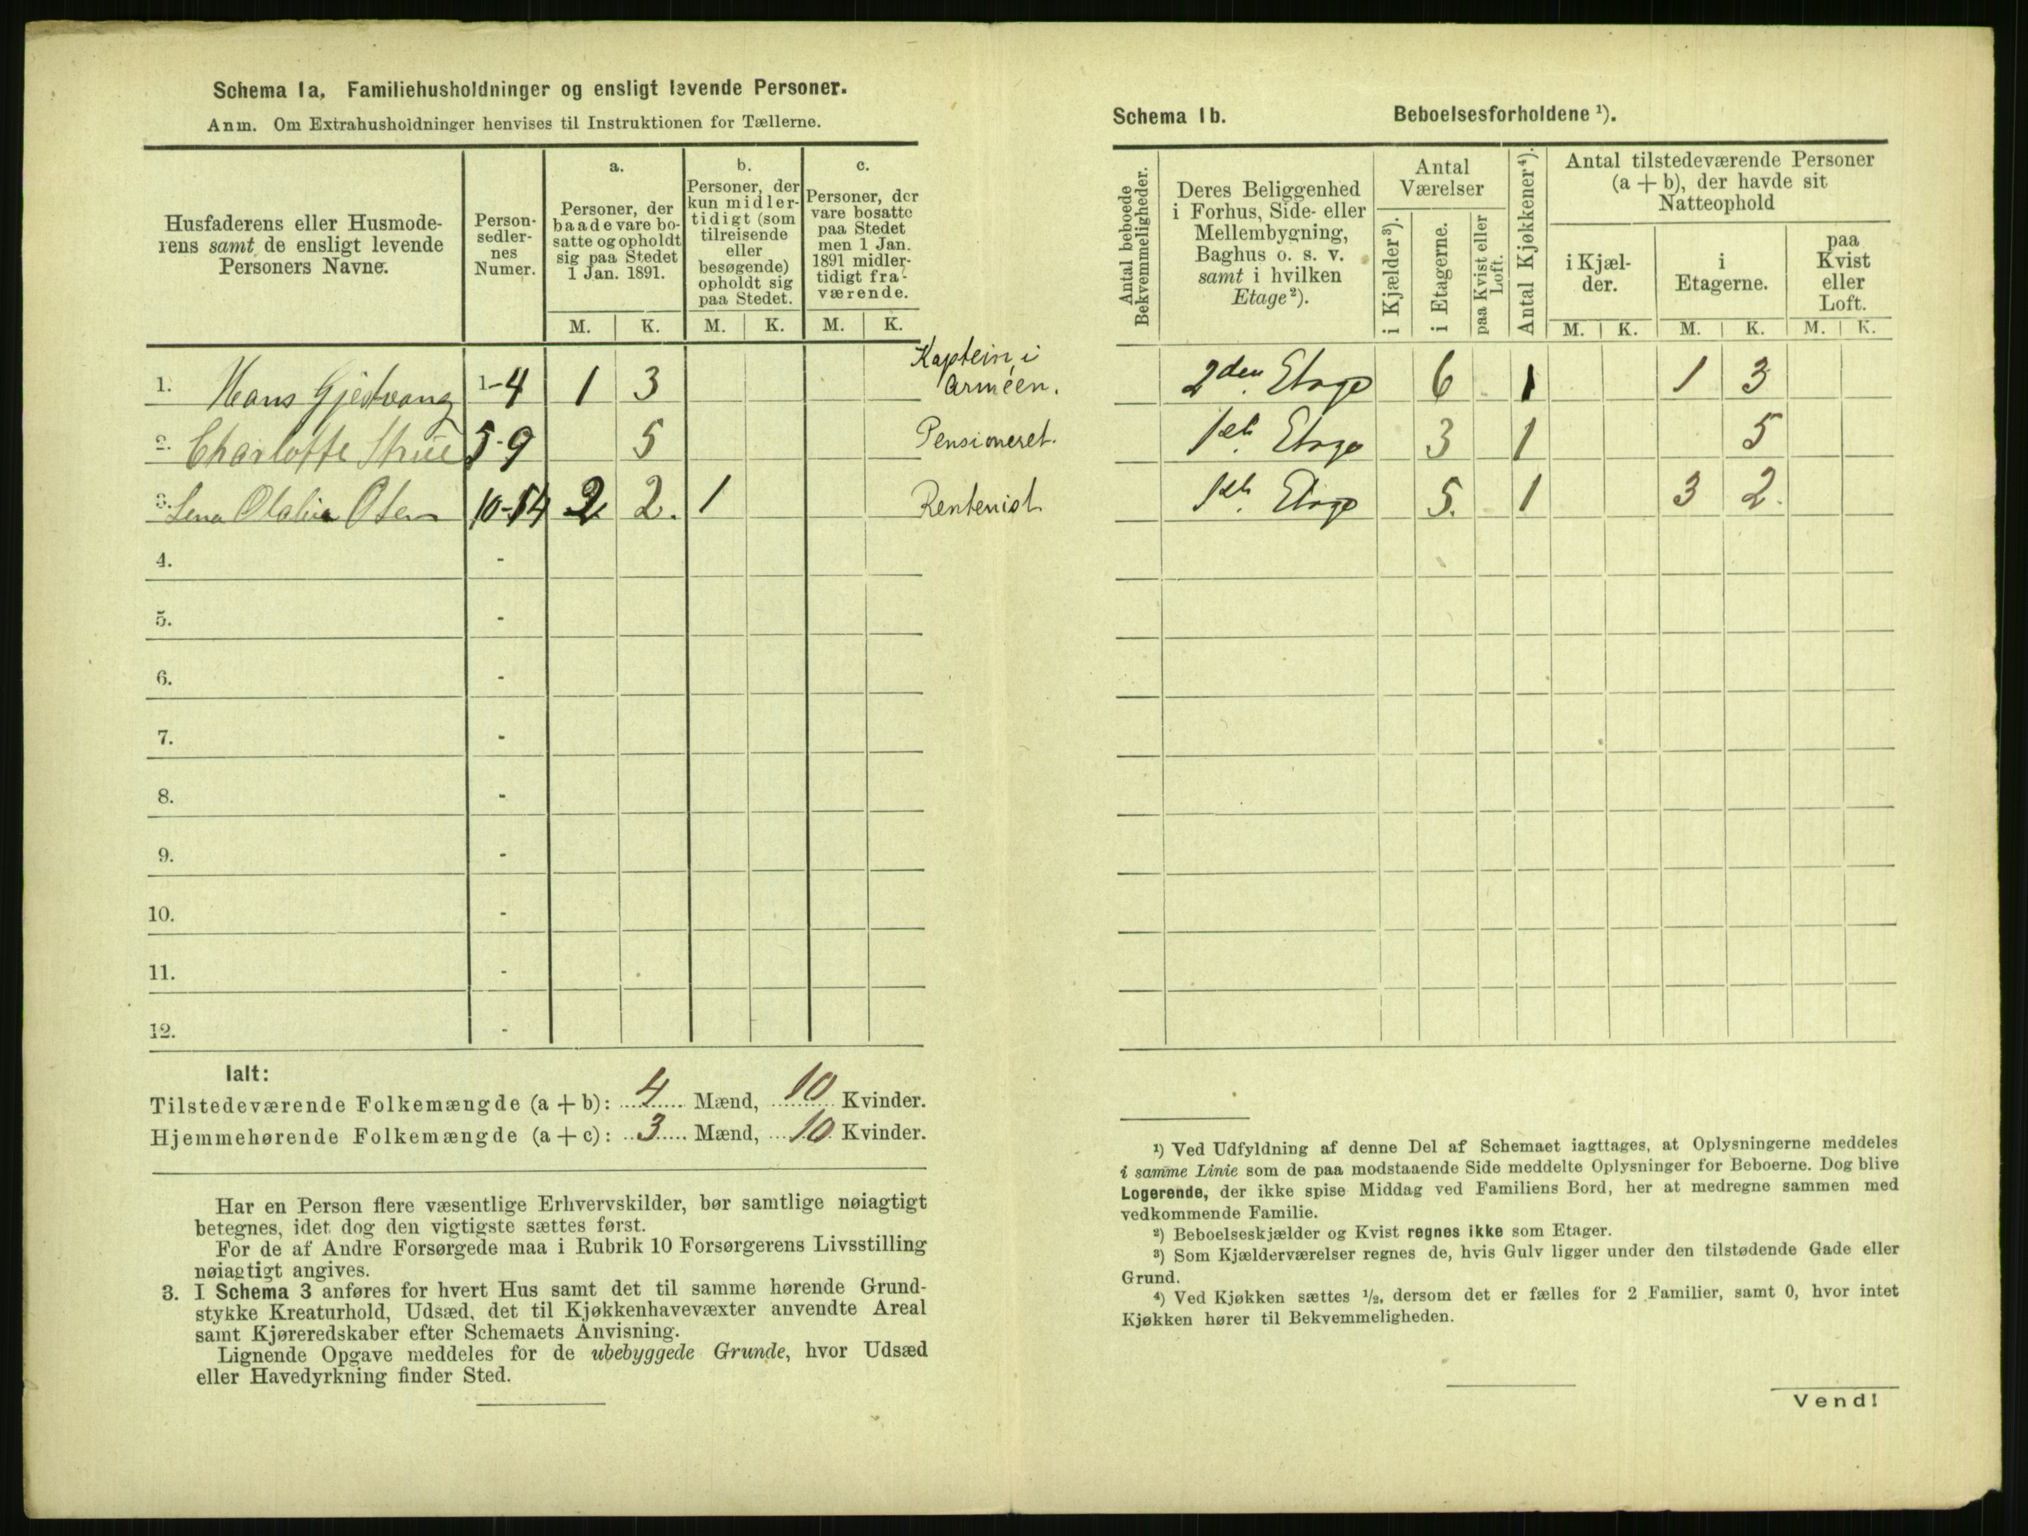 Schema 1a. Familiehusholdninger og ensligt levende Personer.
Anm. Om Extrahusholdninger henvises til Instruktionen for Tællerne.
Husfaderens eller Husmode-
rens samt de ensligt levende
Personers Navne.
Person-
sedler-
nes
Numer.
a.
Personer, der
baade vare bo-
satte og opholdt
sig paa Stedet
1 Jan. 1891.
b.
Personer, der
kun midler-
tidigt (som
tilreisende
eller
besøgende)
opholdt sig
paa Stedet.
c.
Personer, der
vare bosatte
paa Stedet
men 1 Jan.
1891 midler-
tidigt fra-
værende.
M. K. M. K. M. K.
1. Hans Gjedvang 1-4 1 3 Kaptein i
Arméen.
2. Charlotte 5-9 5 Pensioneret.
3. Lena Olsen 10-14 2 2. 1 Rentenist
4. -
5. -
6. -
7. -
8. -
9. -
10. -
11. -
12. -
Ialt:
Tilstedeværende Folkemængde (a + b): 4 Mænd, 10 Kvinder.
Hjemmehørende Folkemængde (a + c): 3 Mænd, 10 Kvinder.
Har en Person flere væsentlige Erhvervskilder, bør samtlige nøiagtigt
betegnes, idet dog den vigtigste sættes først.
For de af Andre Forsørgede maa i Rubrik 10 Forsørgerens Livsstilling
nøiagtigt angives.
3. I Schema 3 anføres for hvert Hus samt det til samme hørende Grund-
stykke Kreaturhold, Udsæd, det til Kjøkkenhavevæxter anvendte Areal
samt Kjøreredskaber efter Schemaets Anvisning.
Lignende Opgave meddeles for de ubebyggede Grunde, hvor Udsæd
eller Havedyrkning finder Sted.
Schema 1b. Beboelsesforholdene ¹).
Antal beboede
Bekvemmeligheder.
Deres Beliggenhed
i Forhus, Side- eller
Mellembygning,
Baghus o. s. v.
samt i hvilken
Etage²).
Antal
Værelser
i Kjælder³).
i Etagerne.
paa Kvist eller
Loft.
Antal Kjøkkener⁴).
Antal tilstedeværende Personer
(a + b), der havde sit
Natteophold
i Kjæl-
der.
i
Etagerne.
paa
Kvist
eller
Loft.
M. K. M. K. M. K.
2den Etage 6 1 1 3
1ste Etage 3 1 5
1ste Etage 5. 1 3 2.
¹) Ved Udfyldning af denne Del af Schemaet iagttages, at Oplysningerne meddeles
i samme Linie som de paa modstaaende Side meddelte Oplysninger for Beboerne. Dog blive
Logerende, der ikke spise Middag ved Familiens Bord, her at medregne sammen med
vedkommende Familie.
²) Beboelseskjælder og Kvist regnes ikke som Etager.
³) Som Kjælderværelser regnes de, hvis Gulv ligger under den tilstødende Gade eller
Grund.
⁴) Ved Kjøkken sættes ½, dersom det er fælles for 2 Familier, samt 0, hvor intet
Kjøkken hører til Bekvemmeligheden.
Vend!